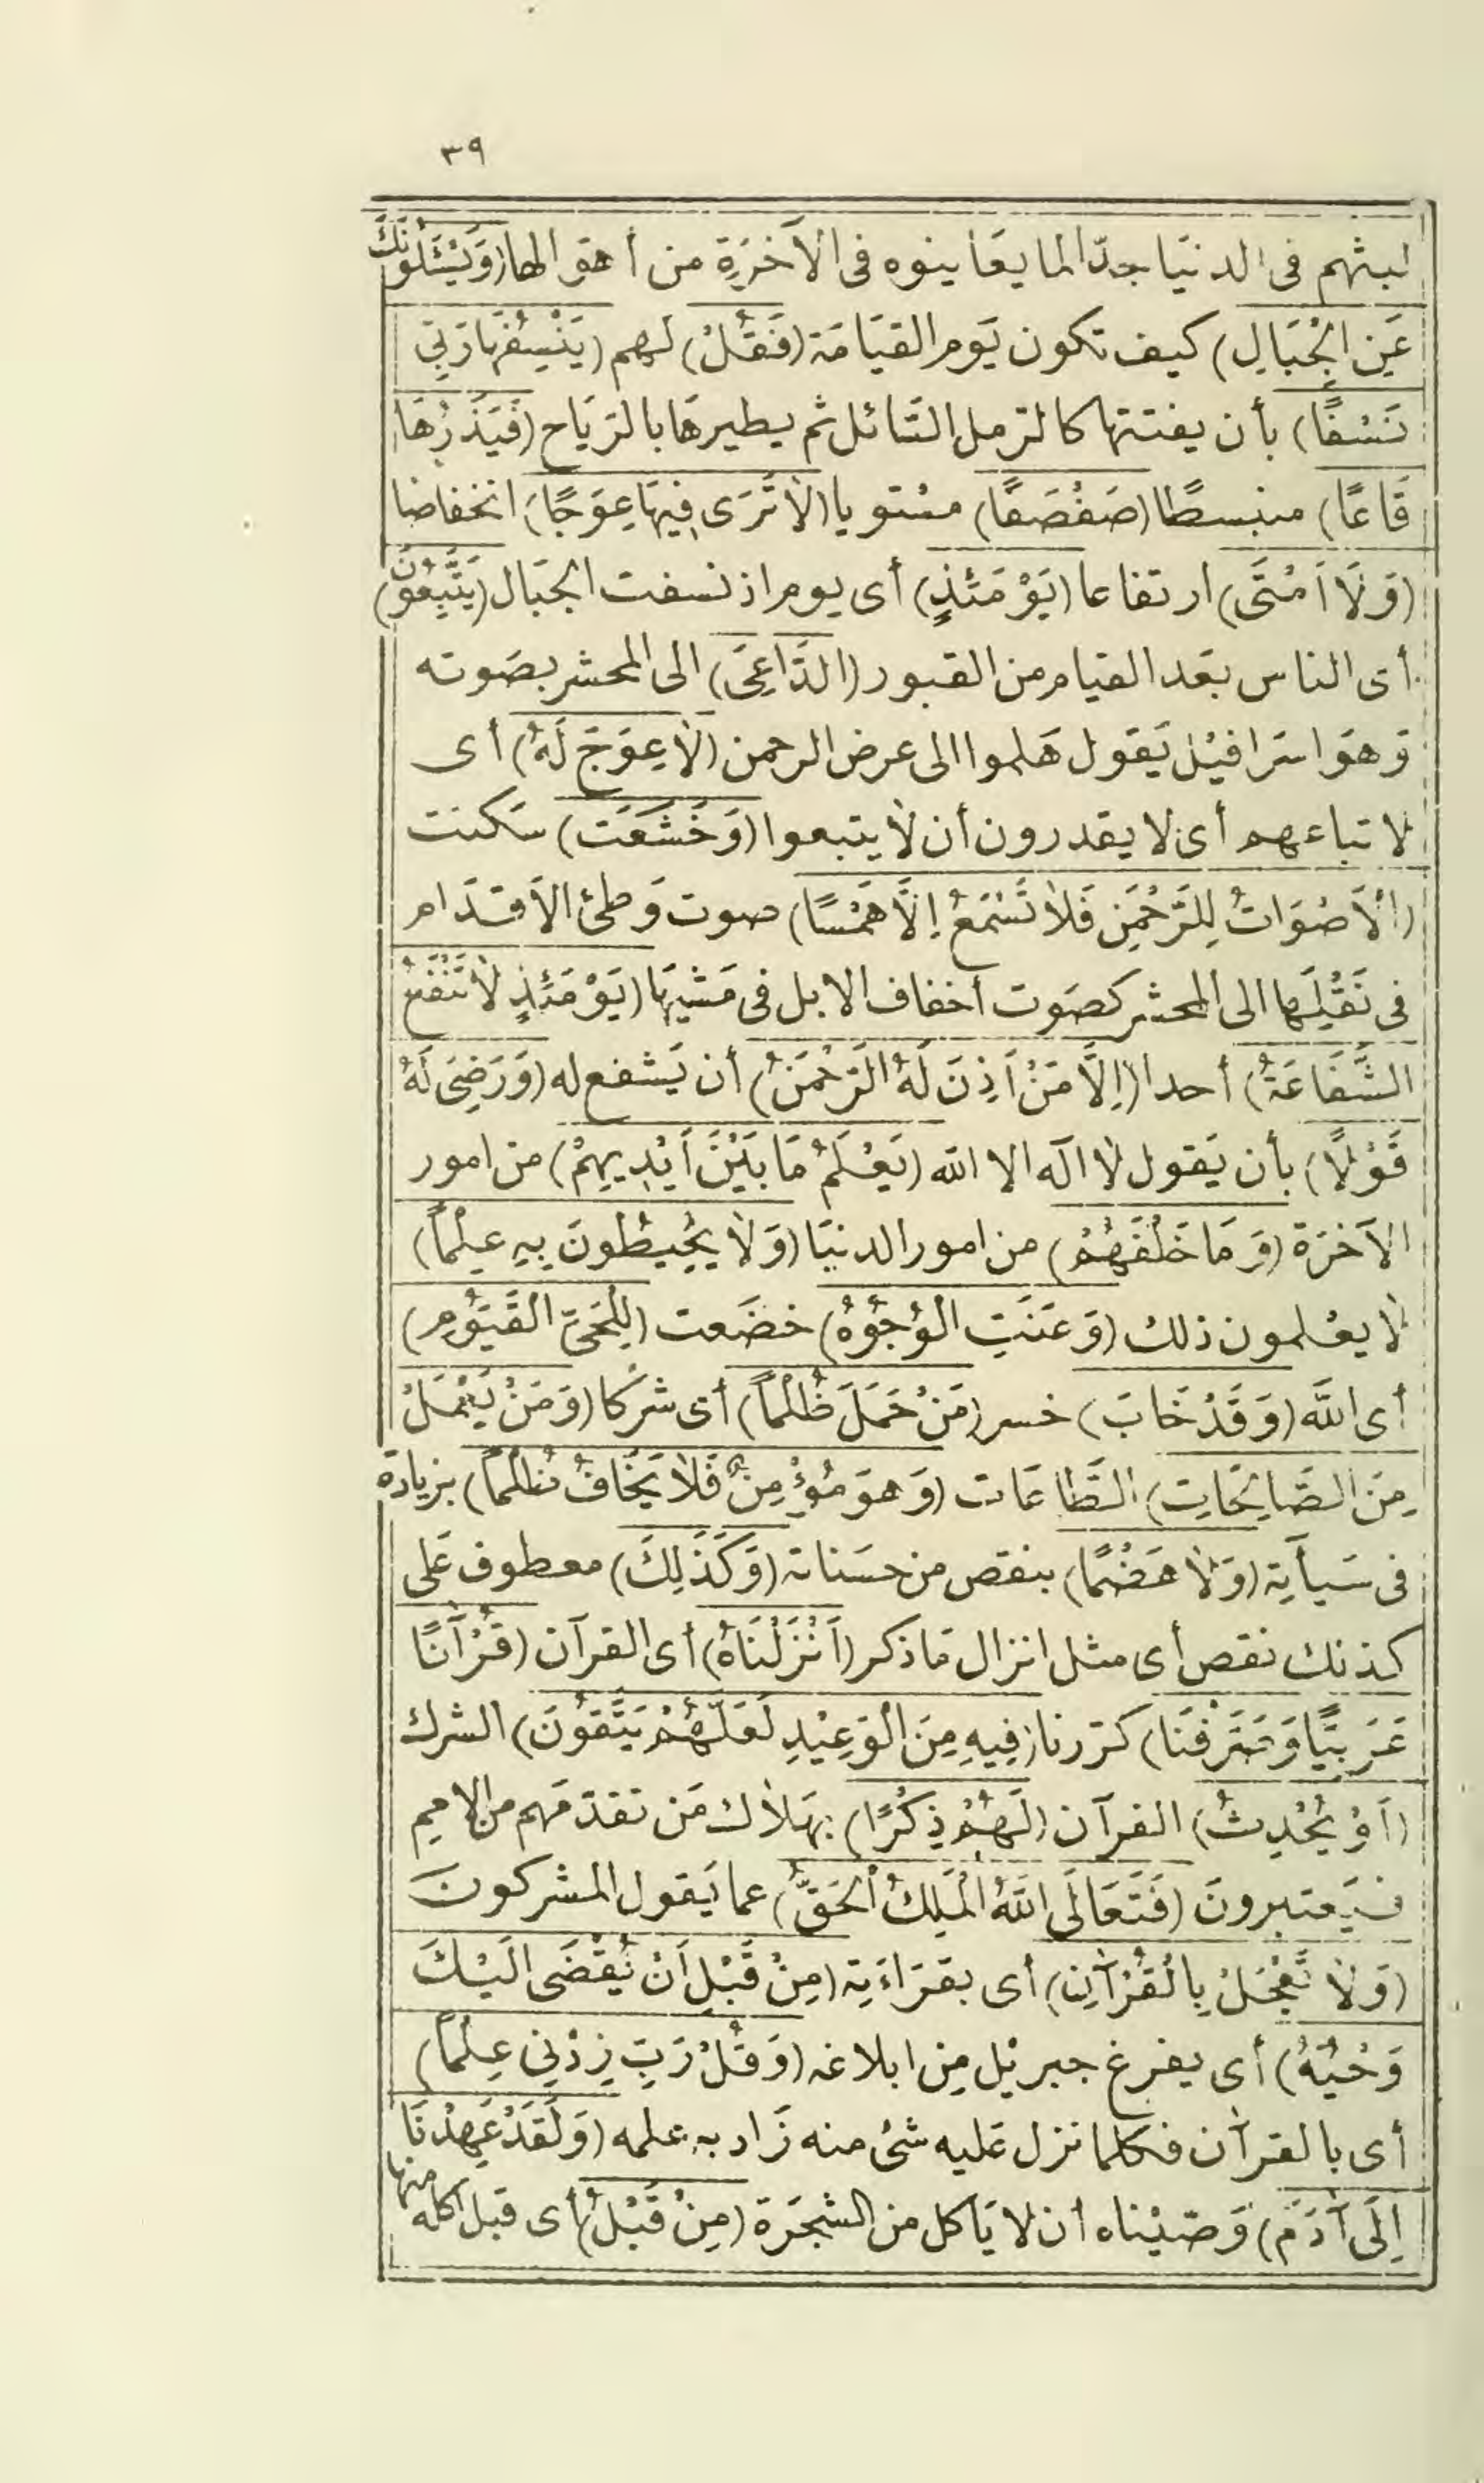 ٣٩
لبثهم فى الدنيَا جدّا لما يعَاينوه فى الآخرَةِ من أهوالها (وَيَسْئَلُونَكَ
عَنِ الْجِبَالِ) كيف تكون يَوم القيَامَة (فَقُلْ) لهم (يَنْسِفُهَا رَبِّي
نَسْفًا) بأن يفتتها كالرّمل السّائل ثم يطيرهَا بالرّيَاح (فَيَذَرُهَا
قَاعًا) منبسطًا (صَفْصَفًا) مستويا (لَا تَرَى فِيهَا عِوَجًا) انخفاضا
(وَلَا اَمْتًى) ارتفاعا (يَوْمَئذٍ) أى يوم اذ نسفت الجبَال (يَتَّبِعُونَ)
أى الناس بعَد القيام من القبور (الدَّاعِىَ) الى المحشر بصَوته
وَهوَ اسرَافيْل يَقول هَلموا الى عرض الرحمن (لَا عِوَجَ لَهُ) أى
لاتباعهم أى لا يقدرون أن لَا يتبعوا (وَخَشَعَتِ) سَكنت
(الْاَصْوَاتُ لِلرَّحْمَنِ فَلَا تَسْمَعُ اِلَّا هَمْسًا) صوت وَطئ الاَقدَام
فى نَقْلِهَا الى المحشر كصَوت أخفاف الابل فى مَشْيهَا (يَوْمَئِذٍ لَا تَنْفَعُ
الشَّفَاعَةُ) أحدا (اِلَّا مَنْ اَذِنَ لَهُ الرَّحْمَنُ) أن يَشفع له (وَرَضِىَ لَهُ
قَوْلًا) بأن يَقول لَا اله الا الله (يَعْلَمُ مَا بَيْنَ اَيْدِيهِمْ) من امور
الآخرَة (وَمَا خَلْفَهُمْ) من امور الدنيَا (وَلَا يُحِيطُونَ بِهِ عِلْماً)
لَا يعْلمون ذلك (وَعَنَتِ الْوُجُوهُ) خضَعت (لِلْحَىِّ الْقَيُّومِ)
أى اللَّه (وَقَدْ خَابَ) خسر (مَنْ حَمَلَ ظُلْماً) أى شرْكا (وَمَنْ يَعْمَلْ
مِنَ الصَّالِحَاتِ) الطَّاعَات (وَهوَ مُؤْمِنٌ فَلَا يَخَافُ ظُلْماً) بزيادة
فى سَيأَتِه (وَلَا هَضْمًا) بنقص من حسَناته (وَكَذَلِكَ) معطوف عَلى
كذلك نقص أى مثل انزال مَا ذكر (اَنْزَلْنَاهُ) أى القرآن (قُرْآنًا
عَرَبِيًّا وَصَرَّفْنَا) كرّرنا (فِيهِ مِنَ الْوَعِيْدِ لَعَلَّهُمْ يَتَّقُونَ) الشرك
(اَوْ يُحْدِثُ) القرآن (لَهُمْ ذِكْرًا) بهَلَاك مَن تقدّمَهم من الامم
فيَعتبرونَ (فَتَعَالَى اللَّهُ الْمَلِكُ الْحَقُّ) عما يَقول المشركونَ
(وَلَا تَعْجَلْ بِالْقُرْآنِ) أى بقرَاءَتِه (مِنْ قَبْلِ اَنْ يُقْضَى اِلَيْكَ
وَحْيُهُ) أى يفرغ جبريْل مِن ابلاغه (وَقُلْ رَبِّ زِدْنِي عِلْماً)
أى بالقرآن فكلما نزل عَليه شئ منه زَاد به علمه (وَلَقَدْ عَهِدْنَا
اِلَى آدَمَ) وَصّيْناه أن لا يَأكل من الشجَرَة (مِنْ قَبْلُ) أى قبل أكله منها